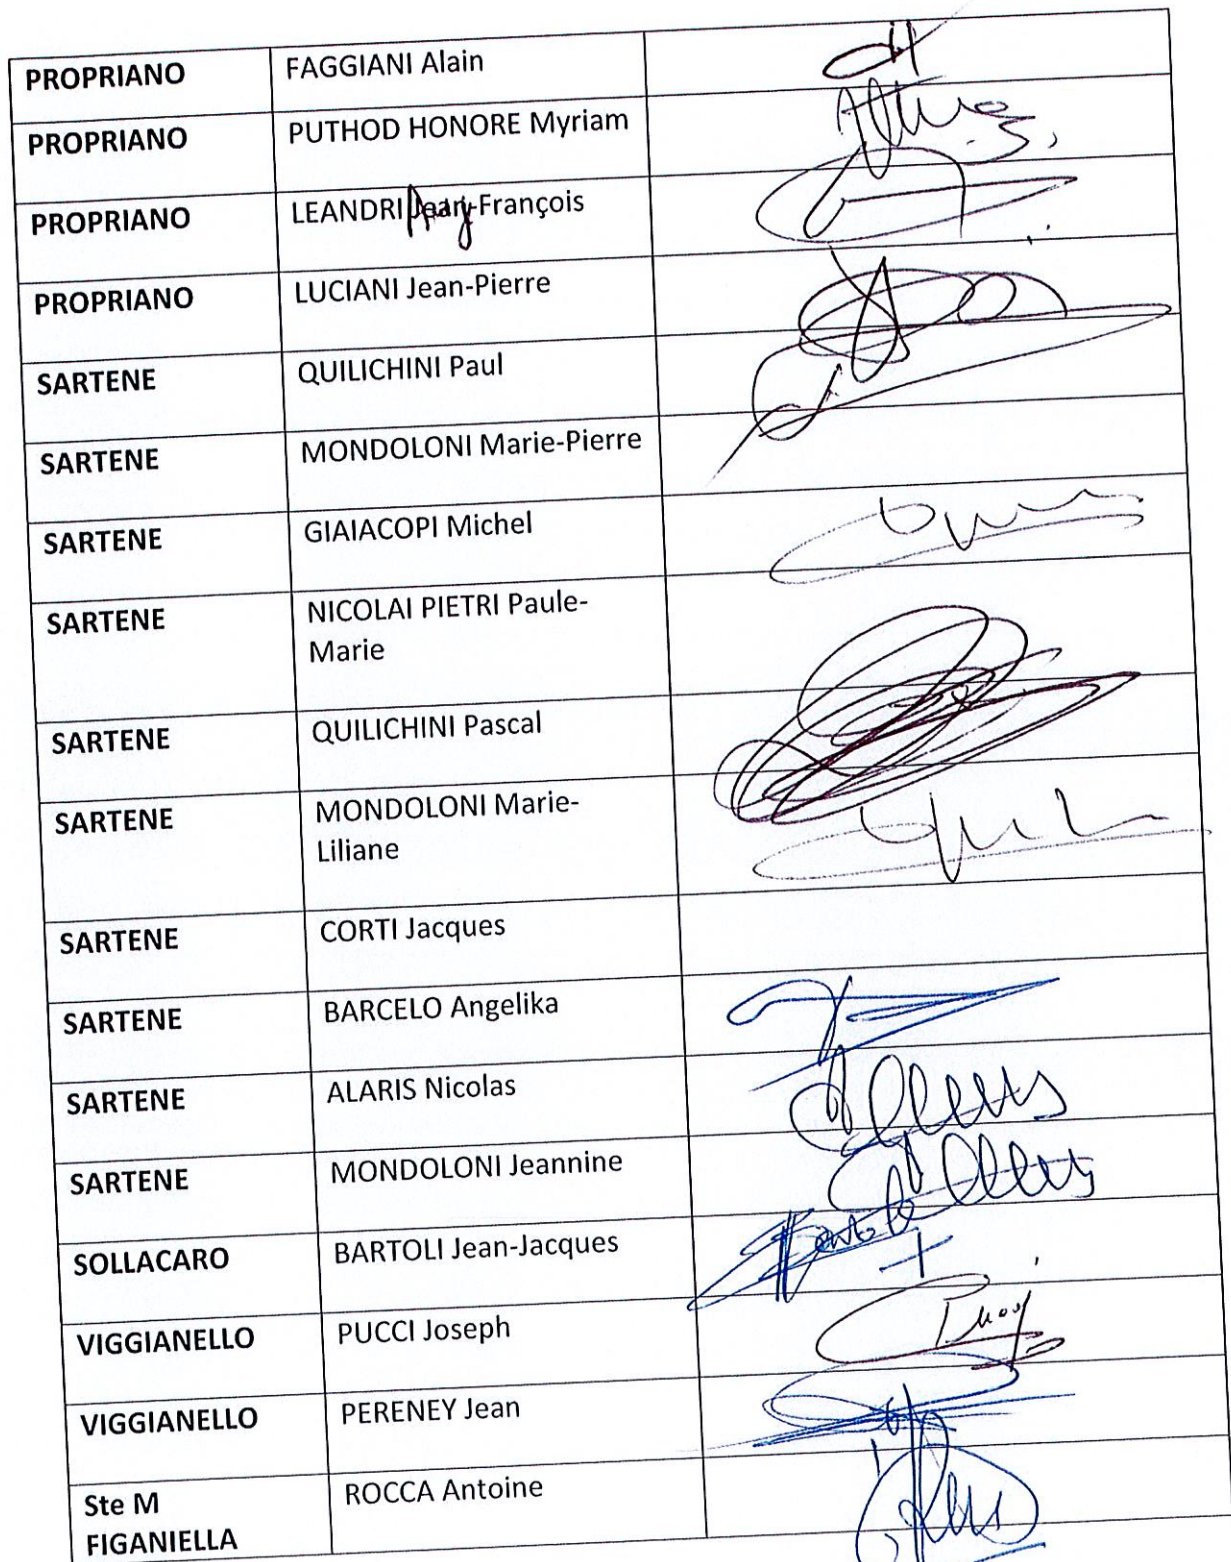 PROPRIANO FAGGIANI Alain
PROPRIANO PUTHOD HONORE Myriam
PROPRIANO LEANDRI Jean-François
PROPRIANO LUCIANI Jean-Pierre
SARTENE QUILICHINI Paul
SARTENE MONDOLONI Marie-Pierre
SARTENE GIAIACOPI Michel
SARTENE NICOLAI PIETRI Paule-
Marie
SARTENE QUILICHINI Pascal
SARTENE MONDOLONI Marie-
Liliane
SARTENE CORTI Jacques
SARTENE BARCELO Angelika
SARTENE ALARIS Nicolas
SARTENE MONDOLONI Jeannine
SOLLACARO BARTOLI Jean-Jacques
VIGGIANELLO PUCCI Joseph
VIGGIANELLO PERENEY Jean
Ste M ROCCA Antoine
FIGANIELLA